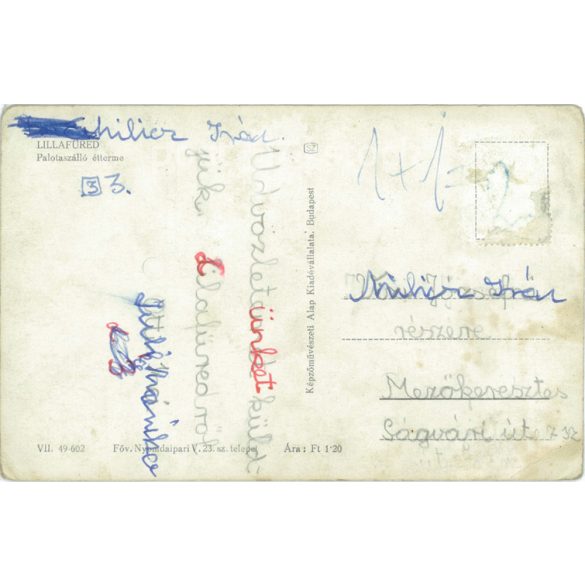 Iván
LILLAFÜRED
Palotaszálló étterme
3 3.
Üdvözletünket küld-
jük Lilafüredről
Képzőművészeti Alap Kiadóvállalata, Budapest
1+1=2
Iván
részére
Mezőkeresztes
Ságvári út 7 32
VII. 49-602 Főv. Nyomdaipari V. 23. sz. telepe Ára: Ft 1·20